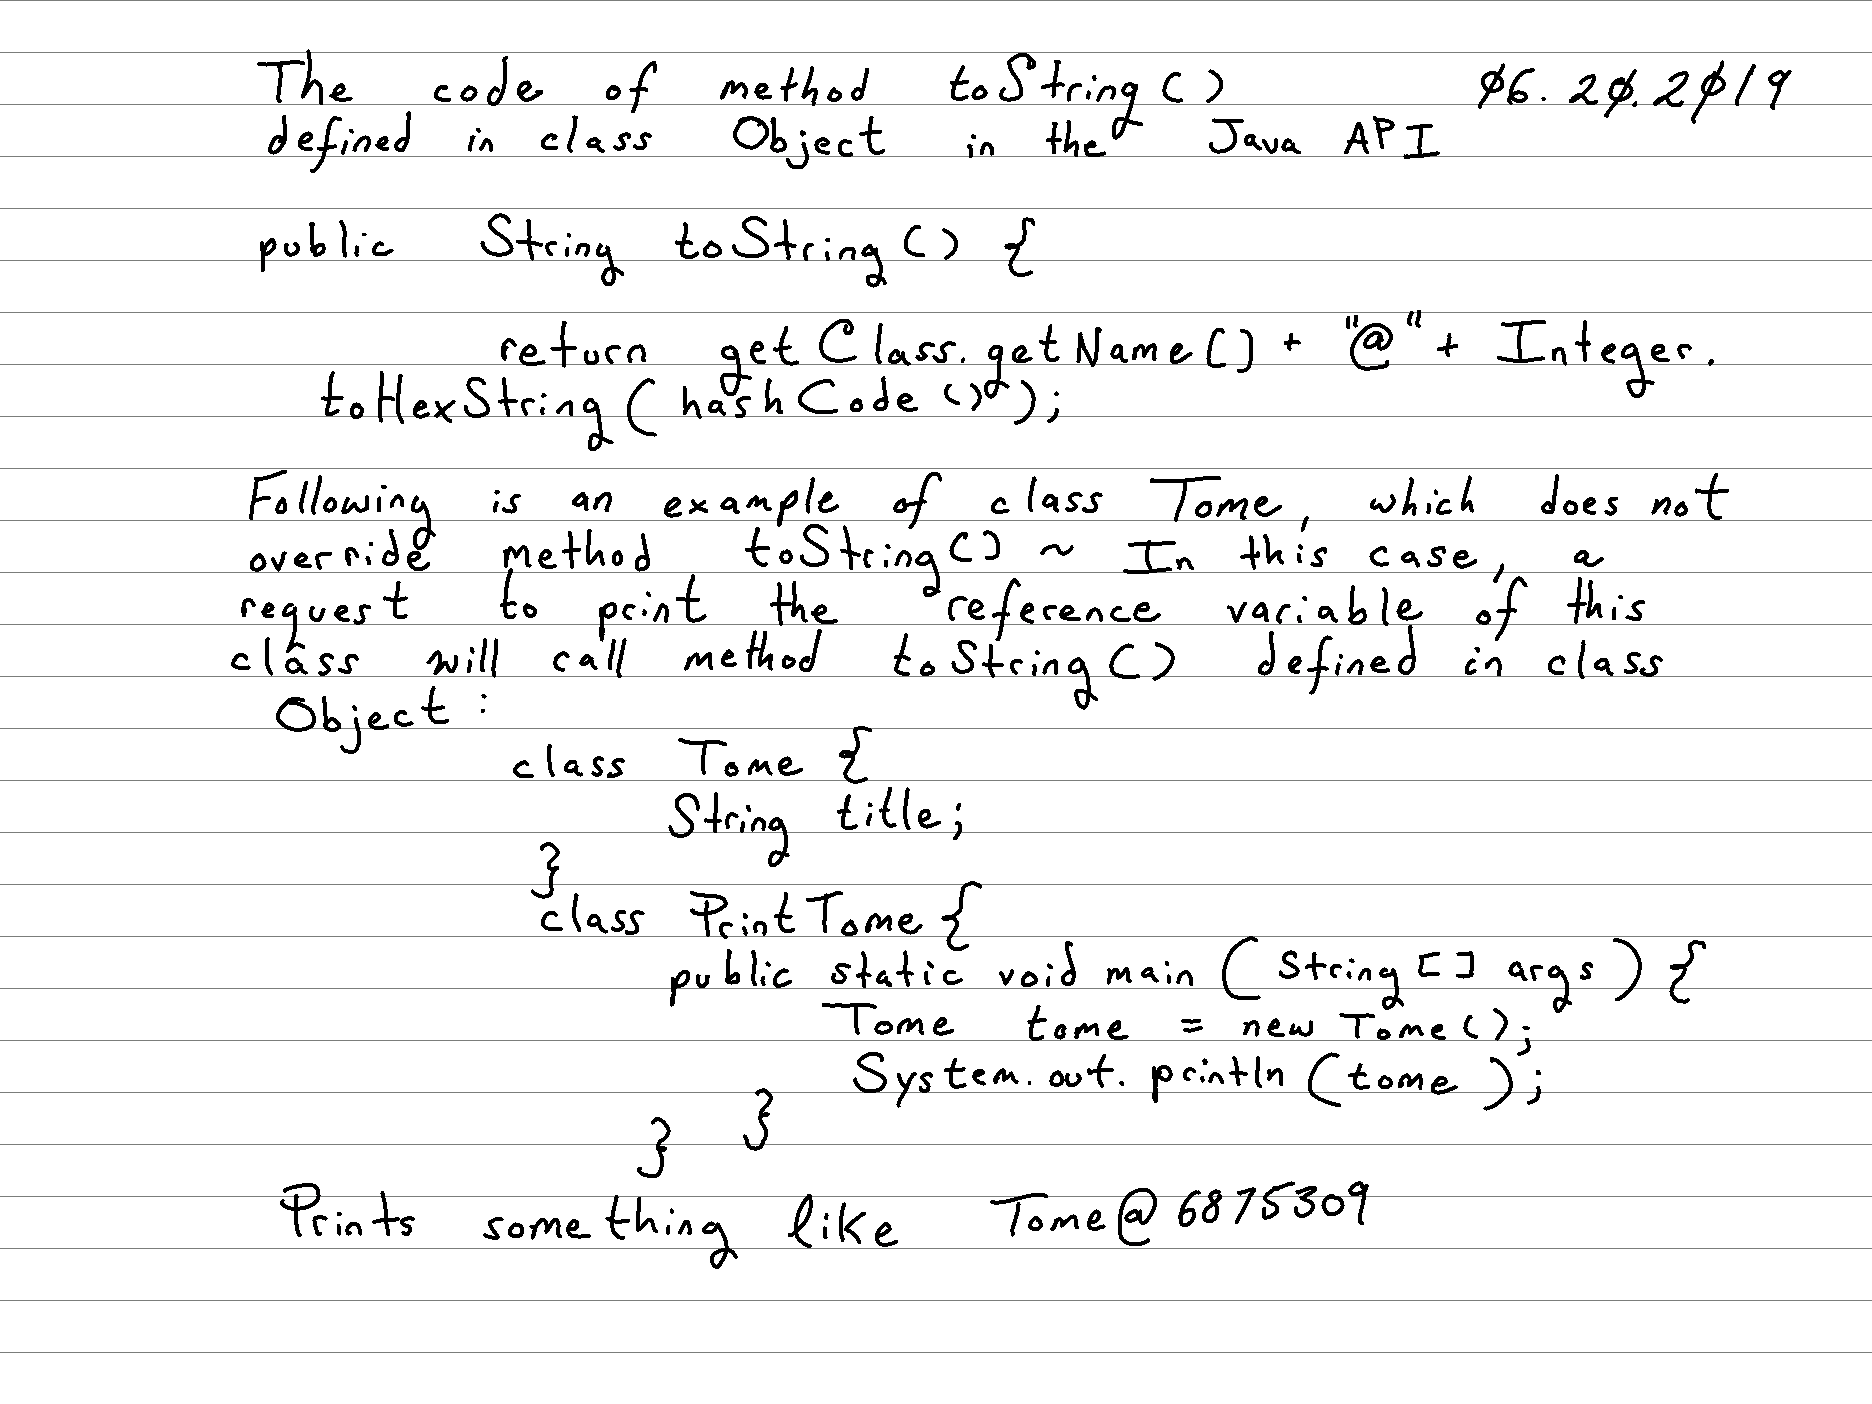 The code of method toString() 06.20.2019
defined in class Object in the Java API
public String toString() {
return getClass.getName() + "@" + Integer.
toHexString(hashCode());
Following is an example of class Tome, which does not
override method toString() ~ In this case, a
request to print the reference variable of this
class will call method toString() defined in class
Object:
class Tome {
String title;
}
class PrintTome {
public static void main (String[] args) {
Tome tome = new Tome();
System.out.println(tome);
}
}
Prints something like Tome@6875309